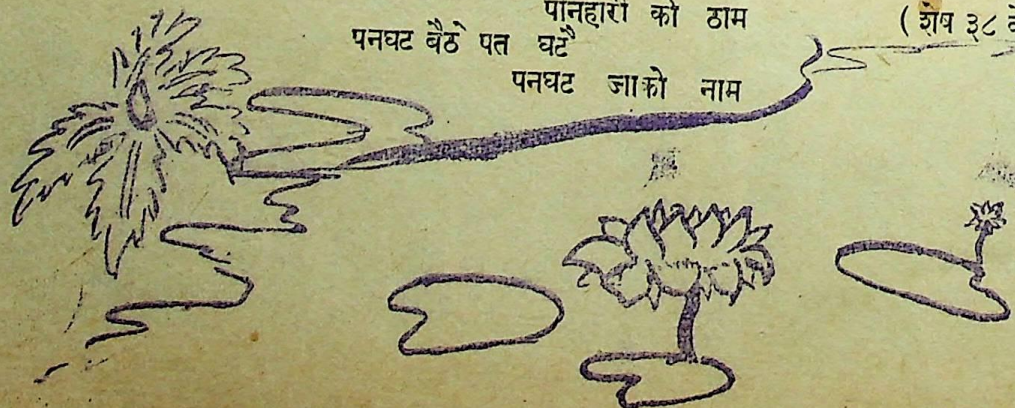 पानहारी को ठाम
पनघट बैठे पत घटै
पनघट जाको नाम
(शेष ३८